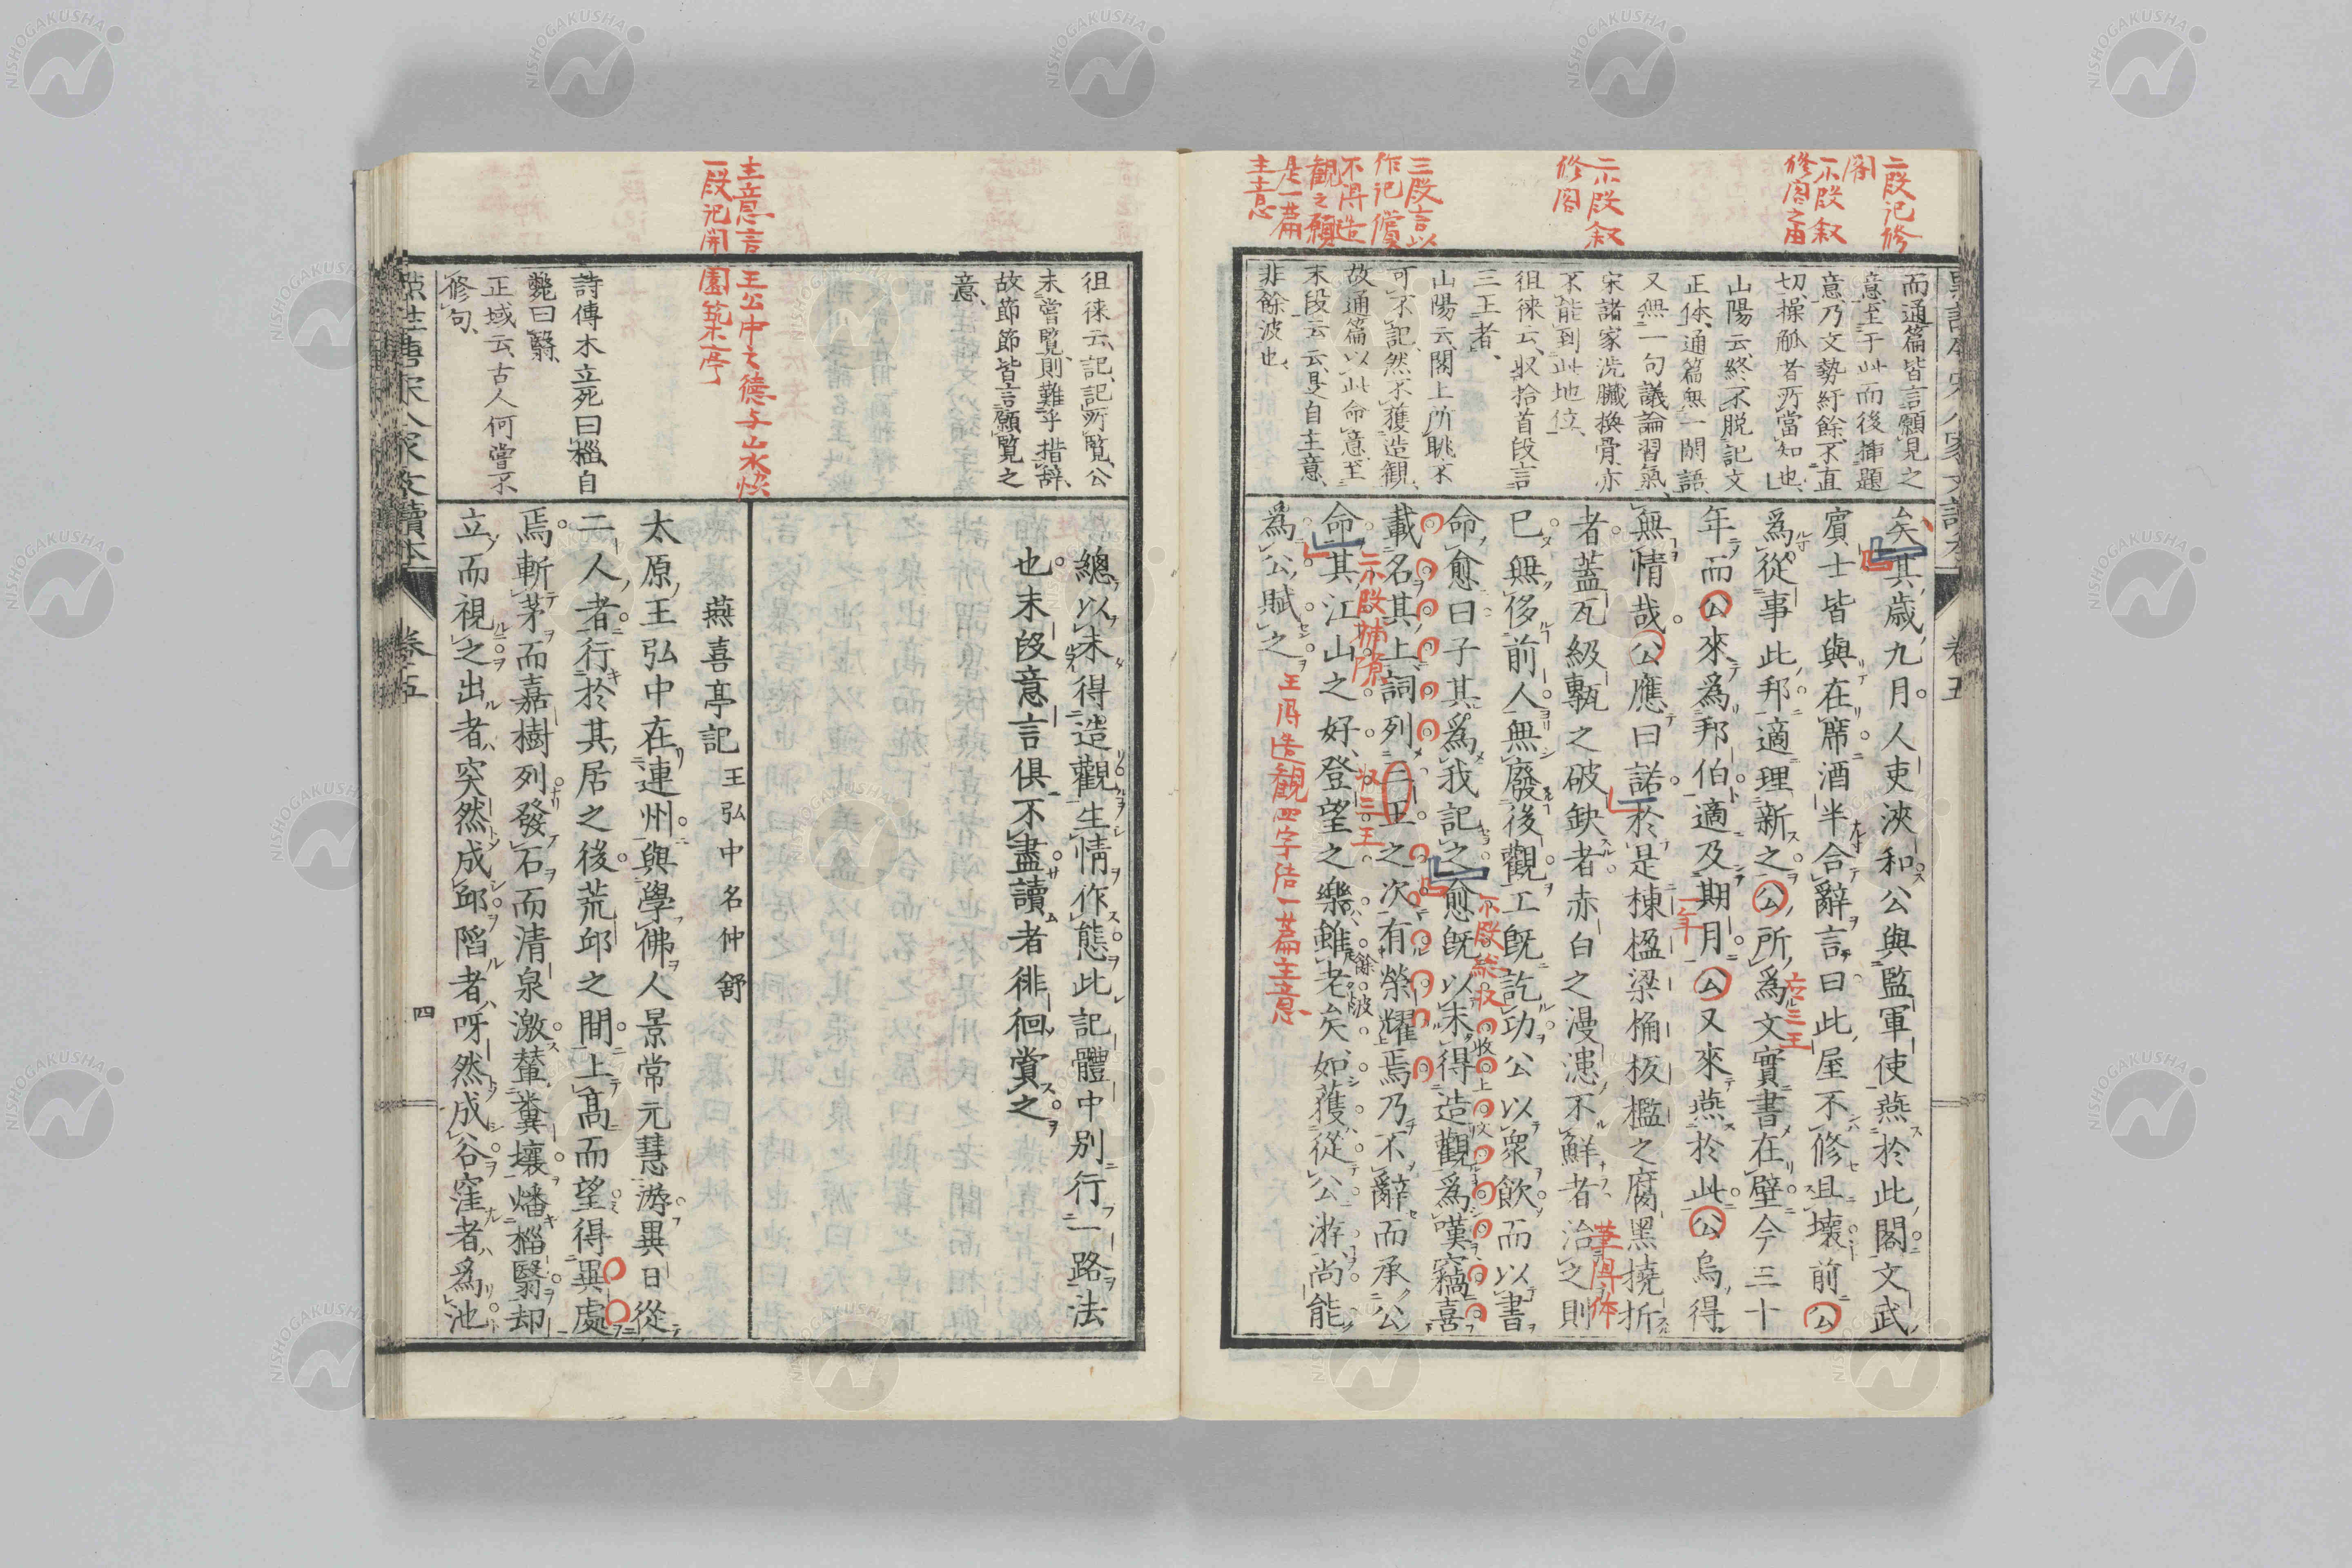 二段記修
閣
一小段叙
修閣之由
二小段叙
修閣
三段言以
作記償
不得造
觀之願
是一篇
主意
而通篇皆言願見之
意至于此而後挿題
意乃文勢紆餘不直
切操觚者所當知也
山陽云終不脱記文
正体通篇無一閑語
又無一句議論習氣
宋諸家洗臟換骨亦
不能到此地位
徂徠云収拾首段言
三王者
山陽云閣上所眺不
可不記然不獲造觀
故通篇以此命意至
末段云云是自主意
非餘波也
矣其歳九月人吏浹和公與監軍使燕於此閣文武
賓士皆與在席酒半合辭言曰此屋不修且壞前公
爲從事此邦適理新之公所爲文實書在壁今三十
年而公來爲邦伯適及期月公又來燕於此公烏得
無情哉公應曰諾於是棟楹梁桷板檻之腐黑撓折
者蓋瓦級甎之破缺者赤白之漫漶不鮮者治之則
已無侈前人無廢後觀工既訖功公以衆飮而以書
命愈曰子其爲我記之愈既以未得造觀爲嘆竊喜
載名其上詞列三王之次有榮耀焉乃不辭而承公
命其江山之好登望之樂雖老矣如獲從公游尚能
爲公賦之
應三王
一年
筆得体
小段総収
収三王
二小段補意
王得造観四字結一篇主意
餘波
卷五
徂徠云記記所覽公
未嘗覽則難乎措辭
故節節皆言願覽之
意
總以未得造觀生情作態此記體中別行一路法
也末段意言倶不盡讀者徘徊賞之
主意言王公中之德与山水愜
一段記開園築亭
燕喜亭記 王弘中名仲舒
詩傳木立死曰椔自
斃曰翳
正域云古人何嘗不
修句
太原王弘中在連州與學佛人景常元慧游異日從
二人者行於其居之後荒邱之間上高而望得異處
焉斬茅而嘉樹列發石而清泉激輦糞壤燔椔翳却
立而視之出者突然成邱陷者呀然成谷窪者爲池
點註唐宋八家文讀本
卷五
四
NISHOGAKUSHA